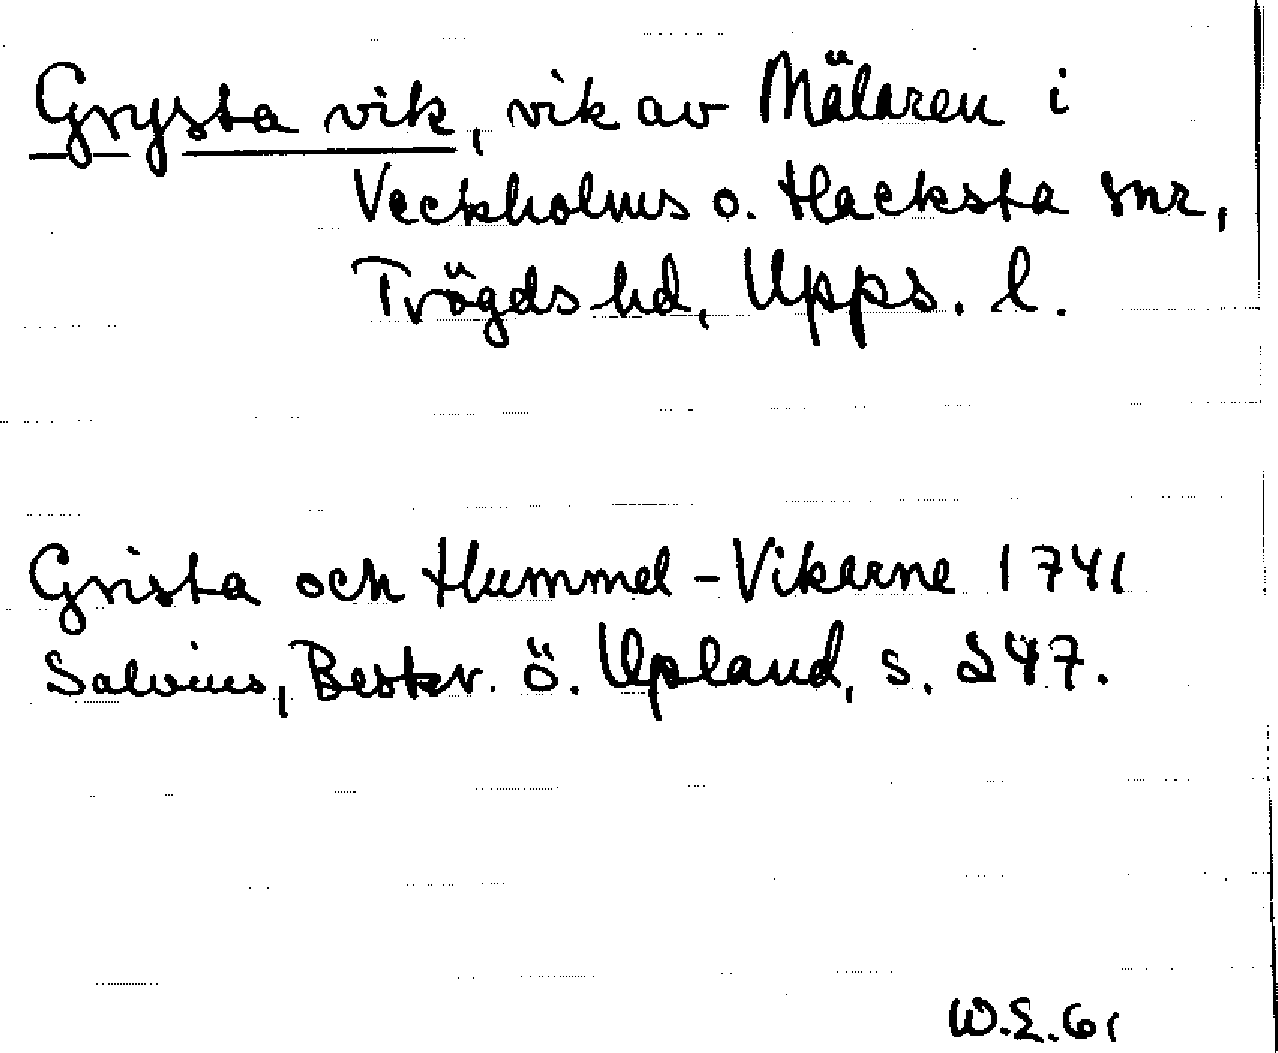 Grysta vik, vik av Mälaren i
Veckholms o. Hacksta snr,
Trögds hd, Upps. l.
Grista och Hummel-Vikarne 1741
Salvius, Beskr. ö. Upland, s. 247.
W.E. 61